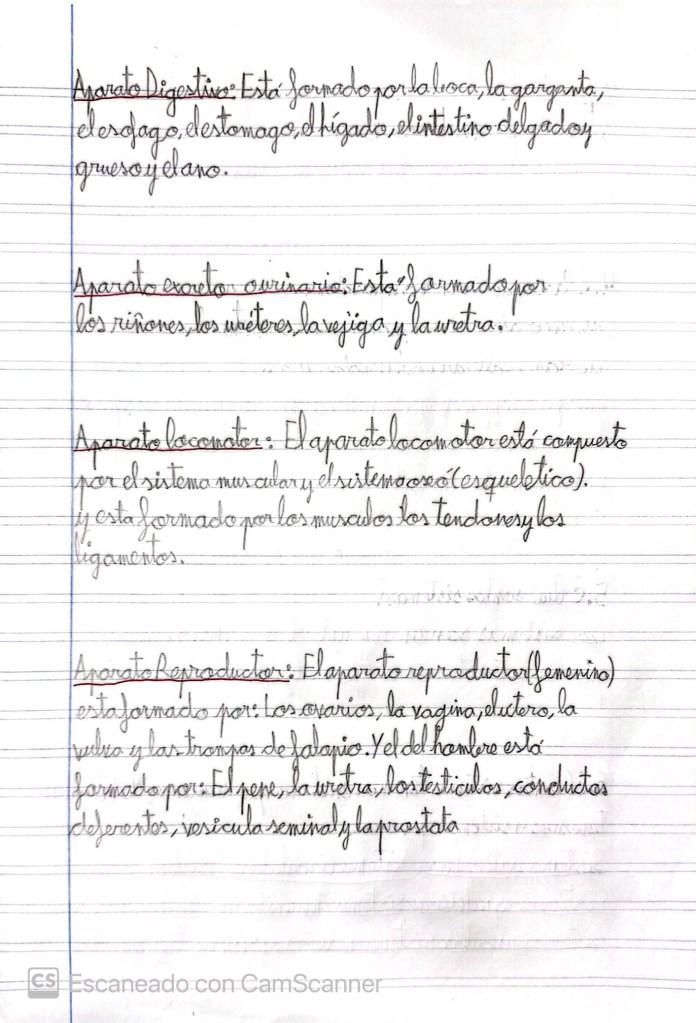 Aparato Digestivo: Está formado por la boca, la garganta,
el esofago, el estomago, el hígado, el intestino delgado y
grueso y el ano.
Aparato excretor o urinario: Está formado por
los riñones, los uréteres, la vejiga y la uretra.
Aparato locomotor: El aparato locomotor está compuesto
por el sistema muscular y el sistema oseó (esqueletico).
y esta formado por los musculos los tendones y los
ligamentos.
Aparato Reproductor: El aparato reproductor (femenino)
esta formado por: Los ovarios, la vagina, el útero, la
vulva y las trompas de falopio. Y el del hombre está
formado por: El pene, la uretra, los testiculos, conductos
deferentes, vesicula seminal y la prostata
CS Escaneado con CamScanner